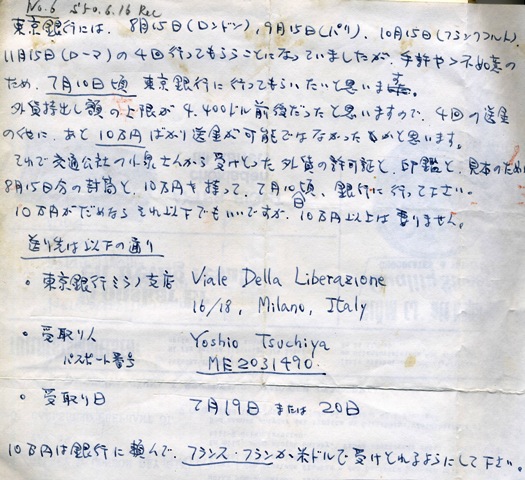 No.6 S50.6.16 Rec
東京銀行には、8月15日(ロンドン)、9月15日(パリ)、10月15日(フランクフルト)、
11月15日(ローマ)の4回行ってもらうことになっていましたが、手許やや不如意の
ため、7月10日頃 東京銀行に行ってもらいたいと思います。
外貨持出し額の上限が4,400ドル前後だったと思いますので、4回の送金
の他に、あと10万円ばかり送金が可能ではなかったかと思います。
それで交通公社の小泉さんから受けとった外貨の許可証と、印鑑と、見本のため
8月15日分の封筒と、10万円を持って、7月10日頃、銀行に行って下さい。
10万円がだめなら それ以下でもいいですが、10万円以上は要りません。
送り先は以下の通り
・東京銀行ミラノ支店 Viale Della Liberazione
16/18, Milano, Italy
・受取り人 Yoshio Tsuchiya
パスポート番号 ME2031490.
・受取り日 7月19日 または 20日
10万円は銀行に頼んで、フランス・フランか米ドルで受けとれるようにして下さい。